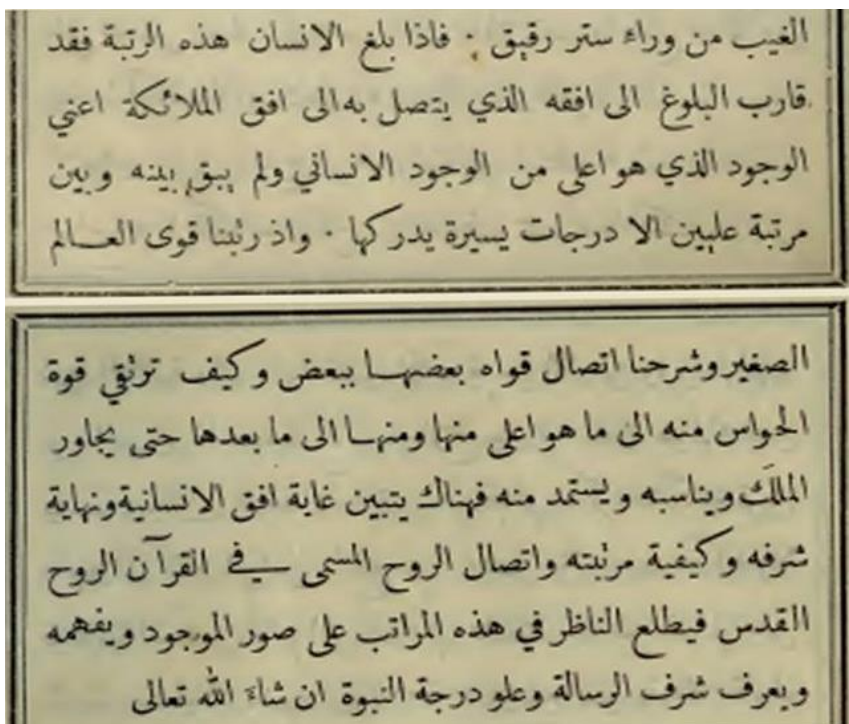 الغيب من وراء ستر رقيق · فاذا بلغ الانسان هذه الرتبة فقد
قارب البلوغ الى افقه الذي يتصل به الى افق الملائكة اعني
الوجود الذي هو اعلى من الوجود الانساني ولم يبق بينه وبين
مرتبة عليين الا درجات يسيرة يدركها · واذ رتبنا قوى العـالم
الصغير وشرحنا اتصال قواه بعضهـا ببعض وكيف ترتقي قوة
الحواس منه الى ما هو اعلى منها ومنهـا الى ما بعدها حتى يجاور
الملَك ويناسبه ويستمد منه فهناك يتبين غاية افق الانسانية ونهاية
شرفه وكيفية مرتبته واتصال الروح المسمى في القرآن الروح
القدس فيطلع الناظر في هذه المراتب على صور الموجود ويفهمه
ويعرف شرف الرسالة وعلو درجة النبوة ان شاءَ الله تعالى